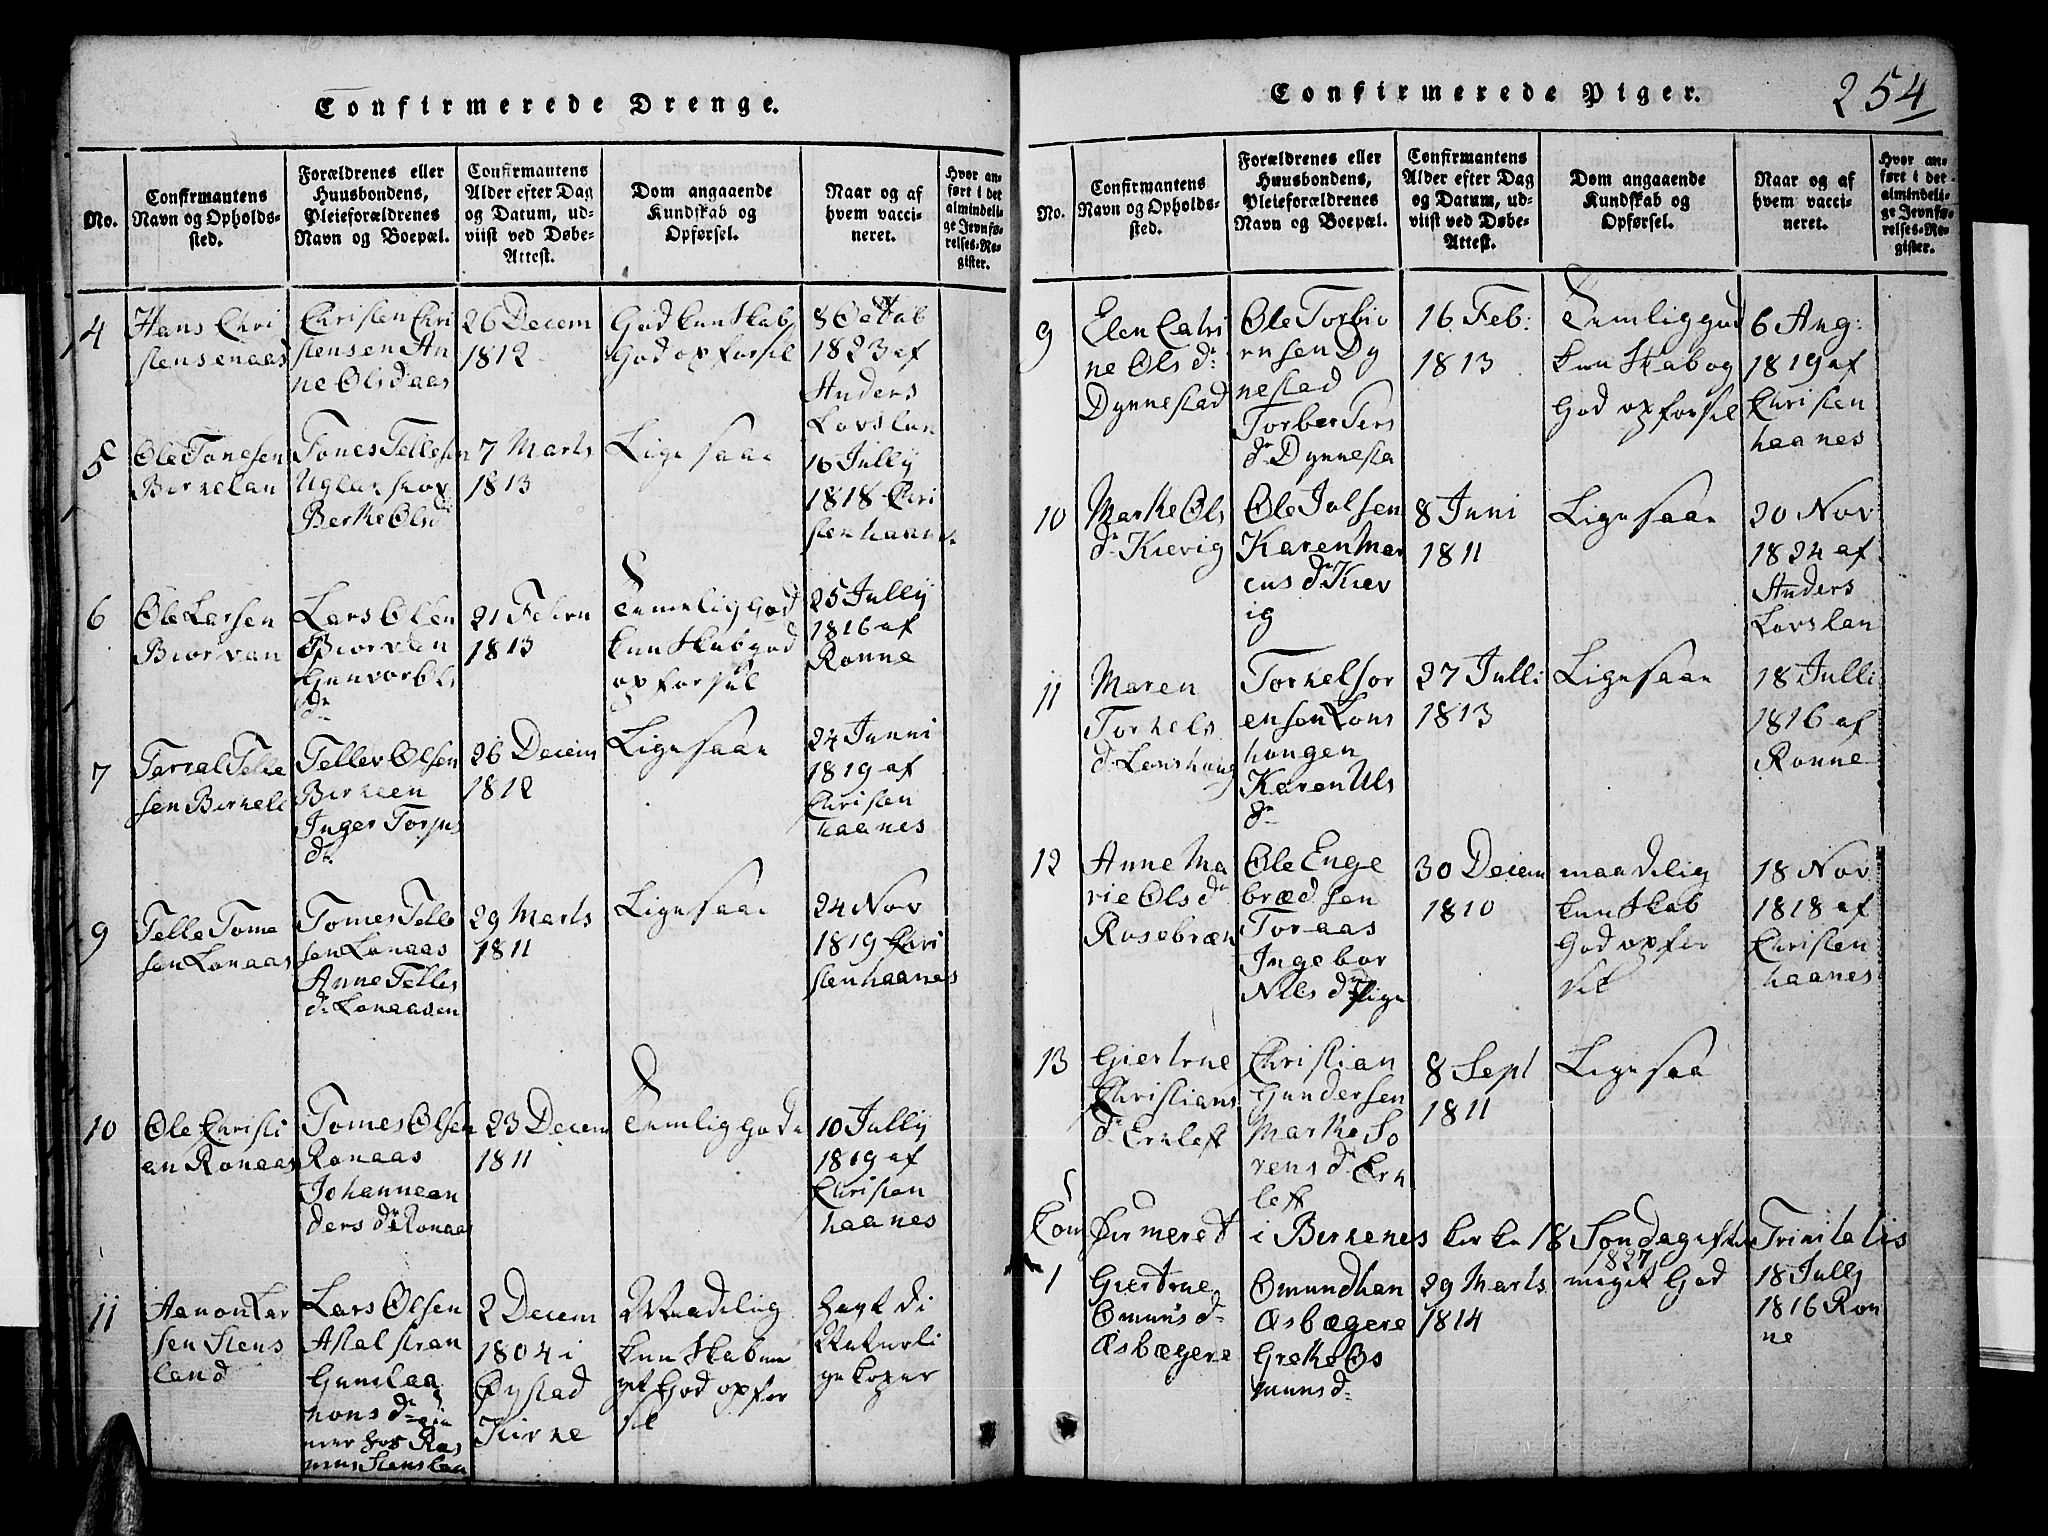 Confirmerede Drenge.
No.
Confirmantens
Navn og Opholds-
sted.
Forældrenes eller
Huusbondens,
Pleieforældrenes
Navn og Boepæl.
Confirmantens
Alder efter Dag
og Datum, ud-
viist ved Døbe-
Attest.
Dom angaaende
Kundskab og
Opførsel.
Naar og af
hvem vacci-
neret.
Hvor an-
ført i det
almindeli-
ge Jevnfø-
relses-Re-
gister.
4
Hans Chri
stensen aas
Christen Chri
stensen An
ne Olsd aas
26 Decem
1812
God kunskab
God opforsel
8 Octob
1823 af
Anders
Lovslan
5
Ole Tonesen
Birkelan
Tones Tellesen
Berthe Olsd
7 Marts
1813
Ligesaa
16 Jully
1818 Chri
sten haanes
6
Ole Larsen
Biorvan
Lars Olsen
Biorvan
Gunvor Ols
dr
21 Febru
1813
Temelig God
kunskab god
opforsel
25 Jully
1816 af
Ronne
7
Tarral Telle
sen Birkeli
Tellev Olsen
Birkeen
Inger Torjus
dr
26 Decem
1812
Ligesaa
24 Junni
1819 af
Christen
haanes
9
Telle Tome
sen Lonaas
Tomes Telle
sen Lonaas
Anne Telles
dr Lonaasen
29 Marts
1811
Ligesaa
24 Nov
1819 Chri
sten haanes
10
Ole Christi
an Ronaas
Tomes Olsen
Ronaas
Johanne an
ders dr Ronaas
23 Decem
1811
Temlig gode
10 Jully
1819 af
Christen
haanes
11
Aanon Lar
sen Stens
land
Lars Olsen
Gunlaa
nons dr
mer hos Ras
mus Stenslan
2 Decem
1804 i
Øystad
Kirke
Maadelig
kunskab me
get God opfor
sel
hagt di
Naturli
ge koper
Confirmerede Piger.
254
No.
Confirmantens
Navn og Opholds-
sted.
Forældrenes eller
Huusbondens,
Pleieforældrenes
Navn og Boepæl.
Confirmantens
Alder efter Dag
og Datum, ud-
viist ved Døbe-
Attest.
Dom angaaende
Kundskab og
Opførsel.
Naar og af
hvem vacci-
neret.
Hvor an-
ført i det
almindeli-
ge Jevnfø-
relses-Re-
gister.
9
Elen Catri
ne Ols dr
Dynnestad
Ole Torbio
rnsen Dy
nestad
Torber Ters
dr Dynnesta
16 Feb:
1813
Temlig god
kunskab og
God opforsel
6 Aug:
1819 af
Christen
haanes
10
Marthe Ols
dr Kievig
Ole Julsen
Karen Mar
cus dr Kiev
ig
8 Juni
1811
Ligesaa
20 Nov
1824 af
Anders
Lovslan
11
Maren
Torkels
dr Lonshaug
Torkel Sor
ensen Lons
hougen
Karen Nils
dr
27 Julli
1813
Ligesaa
18 Julli
1816 af
Ronne
12
Anne Ma
rie Ols dr
Rosebræn
Ole Enge
bræd sen
Toraas
Ingebor
Nils dr Pige
30 Decem
1810
maadelig
kunskab
God opfor
sel
18 Nov
1818 af
Christen
haanes
13
Giertrue
Christians
dr Erkleft
Christian
Gundersen
Marthe So
rens dr Erk
left
8 Sept
1811
Ligesaa
Confirmeret i Birkenes kerke 18 Sondag efter Trinitatis
1827
1
Giertrue
Omunsd
Øsbægere
Omund han
Øsbægere
Grethe Os
munsd
29 Marts
1814
meget God
18 Jully
1816 Ron
ne